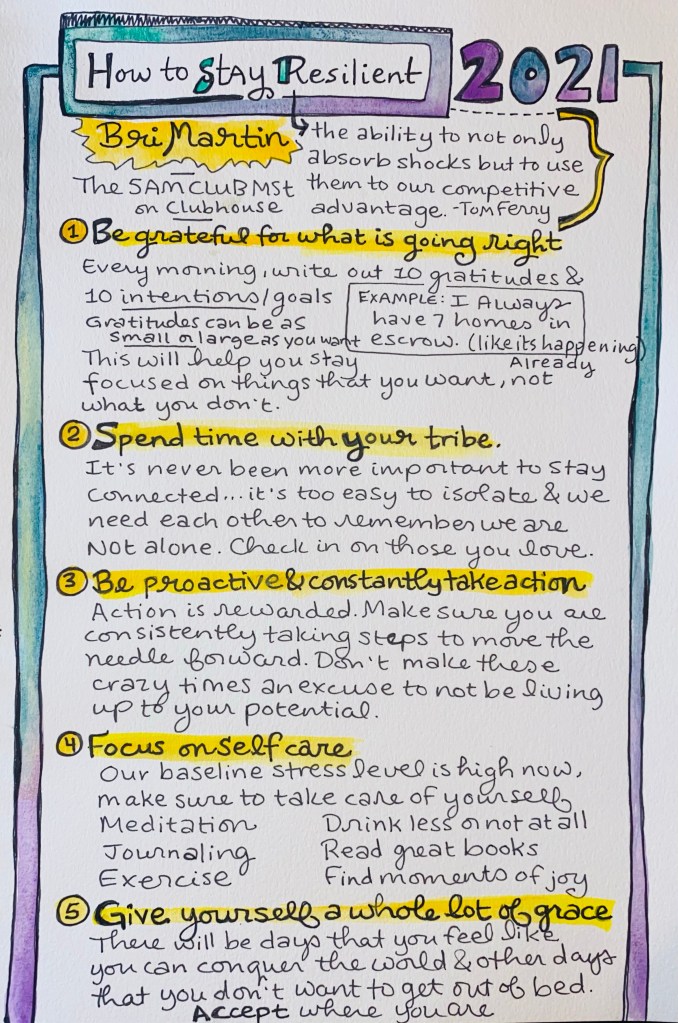 How to Stay Resilient 2021
Bri Martin
The SAMCLUBMST
on Clubhouse
the ability to not only
absorb shocks but to use
them to our competitive
advantage. -Tom Ferry
1 Be grateful for what is going right
Every morning, write out 10 gratitudes &
10 intentions/goals
Gratitudes can be as
small or large as you want
EXAMPLE: I Always
have 7 homes in
escrow. (like its happening)
Already
This will help you stay
focused on things that you want, not
what you don't.
2 Spend time with your tribe.
It's never been more important to stay
connected... it's too easy to isolate & we
need each other to remember we are
Not alone. Check in on those you love.
3 Be proactive & constantly take action
Action is rewarded. Make sure you are
consistently taking steps to move the
needle forward. Don't make these
crazy times an excuse to not be living
up to your potential.
4 Focus on self care
Our baseline stress level is high now,
make sure to take care of yourself
Meditation Drink less or not at all
Journaling Read great books
Exercise Find moments of joy
5 Give yourself a whole lot of grace
There will be days that you feel like
you can conquer the world & other days
that you don't want to get out of bed.
Accept where you are